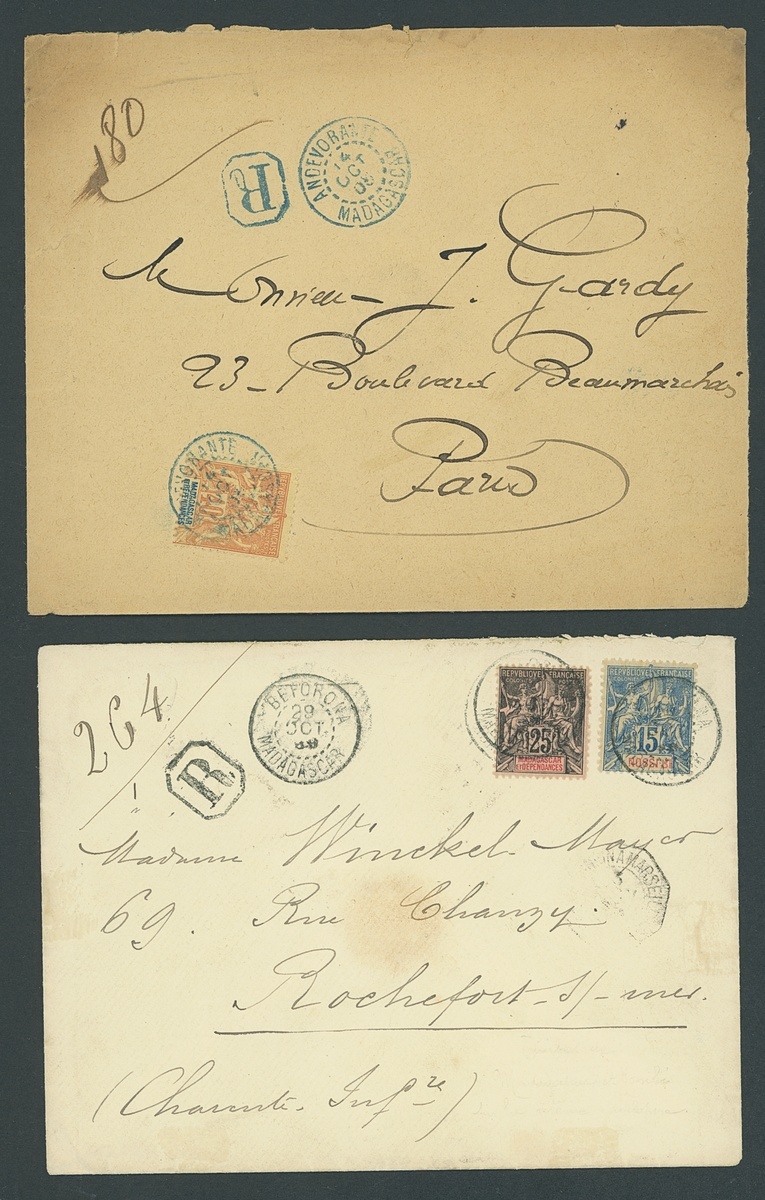 180
R
ANDEVORANTE
14
OCT
MADAGASCAR
Monsieur J. Gardy
23 - Boulevard Beaumarchais
Paris
MADAGASCAR
ET DÉPENDANCES
264
R
BEFORONA
29
OCT
MADAGASCAR
REPVBLIQVE FRANÇAISE
COLONIES POSTES
25
MADAGASCAR
ET DÉPENDANCES
REPVBLIQVE FRANÇAISE
COLONIES POSTES
15
Madame Winckel-Mayer
69. Rue Chanzy.
Rochefort-s/-mer.
(Charente-Infre)